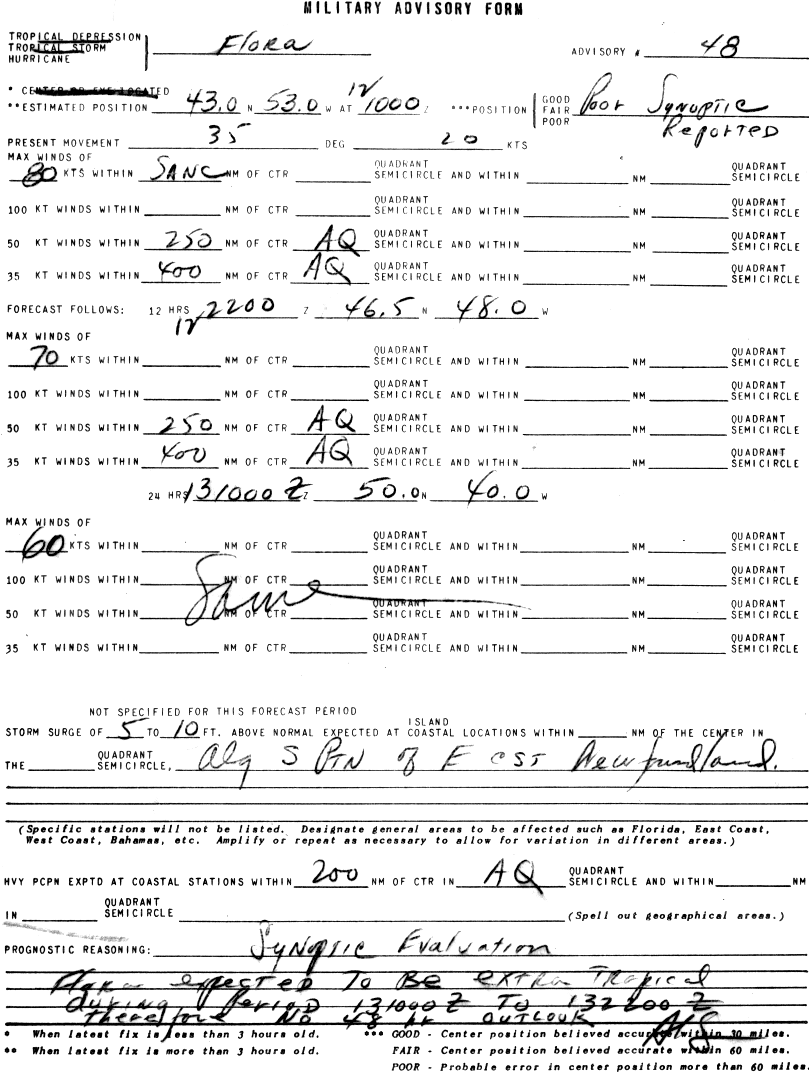 MILITARY ADVISORY FORM
TROPICAL DEPRESSION
TROPICAL STORM
HURRICANE
Flora
ADVISORY # 48
* CENTER LOCATED
**ESTIMATED POSITION 43.0 N 53.0 W AT 12/1000 Z ***POSITION GOOD FAIR POOR Poor Synoptic
Reported
PRESENT MOVEMENT 35 DEG 20 KTS
MAX WINDS OF
80 KTS WITHIN SANC NM OF CTR QUADRANT SEMICIRCLE AND WITHIN NM QUADRANT SEMICIRCLE
100 KT WINDS WITHIN NM OF CTR QUADRANT SEMICIRCLE AND WITHIN NM QUADRANT SEMICIRCLE
50 KT WINDS WITHIN 250 NM OF CTR AQ QUADRANT SEMICIRCLE AND WITHIN NM QUADRANT SEMICIRCLE
35 KT WINDS WITHIN 400 NM OF CTR AQ QUADRANT SEMICIRCLE AND WITHIN NM QUADRANT SEMICIRCLE
FORECAST FOLLOWS: 12 HRS 12/2200 Z 46.5 N 48.0 W
MAX WINDS OF
70 KTS WITHIN NM OF CTR QUADRANT SEMICIRCLE AND WITHIN NM QUADRANT SEMICIRCLE
100 KT WINDS WITHIN NM OF CTR QUADRANT SEMICIRCLE AND WITHIN NM QUADRANT SEMICIRCLE
50 KT WINDS WITHIN 250 NM OF CTR AQ QUADRANT SEMICIRCLE AND WITHIN NM QUADRANT SEMICIRCLE
35 KT WINDS WITHIN 400 NM OF CTR AQ QUADRANT SEMICIRCLE AND WITHIN NM QUADRANT SEMICIRCLE
24 HRS 131000 Z Z 50.0 N 40.0 W
MAX WINDS OF
60 KTS WITHIN NM OF CTR QUADRANT SEMICIRCLE AND WITHIN NM QUADRANT SEMICIRCLE
100 KT WINDS WITHIN NM OF CTR QUADRANT SEMICIRCLE AND WITHIN NM QUADRANT SEMICIRCLE
Same
50 KT WINDS WITHIN NM OF CTR QUADRANT SEMICIRCLE AND WITHIN NM QUADRANT SEMICIRCLE
35 KT WINDS WITHIN NM OF CTR QUADRANT SEMICIRCLE AND WITHIN NM QUADRANT SEMICIRCLE
NOT SPECIFIED FOR THIS FORECAST PERIOD
STORM SURGE OF 5 TO 10 FT. ABOVE NORMAL EXPECTED AT ISLAND COASTAL LOCATIONS WITHIN NM OF THE CENTER IN
THE QUADRANT SEMICIRCLE, alg S PTN of E CST Newfundland.
(Specific stations will not be listed. Designate general areas to be affected such as Florida, East Coast,
West Coast, Bahamas, etc. Amplify or repeat as necessary to allow for variation in different areas.)
HVY PCPN EXPTD AT COASTAL STATIONS WITHIN 200 NM OF CTR IN AQ QUADRANT SEMICIRCLE AND WITHIN NM
IN QUADRANT SEMICIRCLE (Spell out geographical areas.)
PROGNOSTIC REASONING: Synoptic Evaluation
Flora expected To Be extra Tropical
during Period 131000 Z To 132200 Z
therefore No 48 hr OUTLOOK
* When latest fix is less than 3 hours old. *** GOOD - Center position believed accurate within 30 miles.
** When latest fix is more than 3 hours old. FAIR - Center position believed accurate within 60 miles.
POOR - Probable error in center position more than 60 miles.